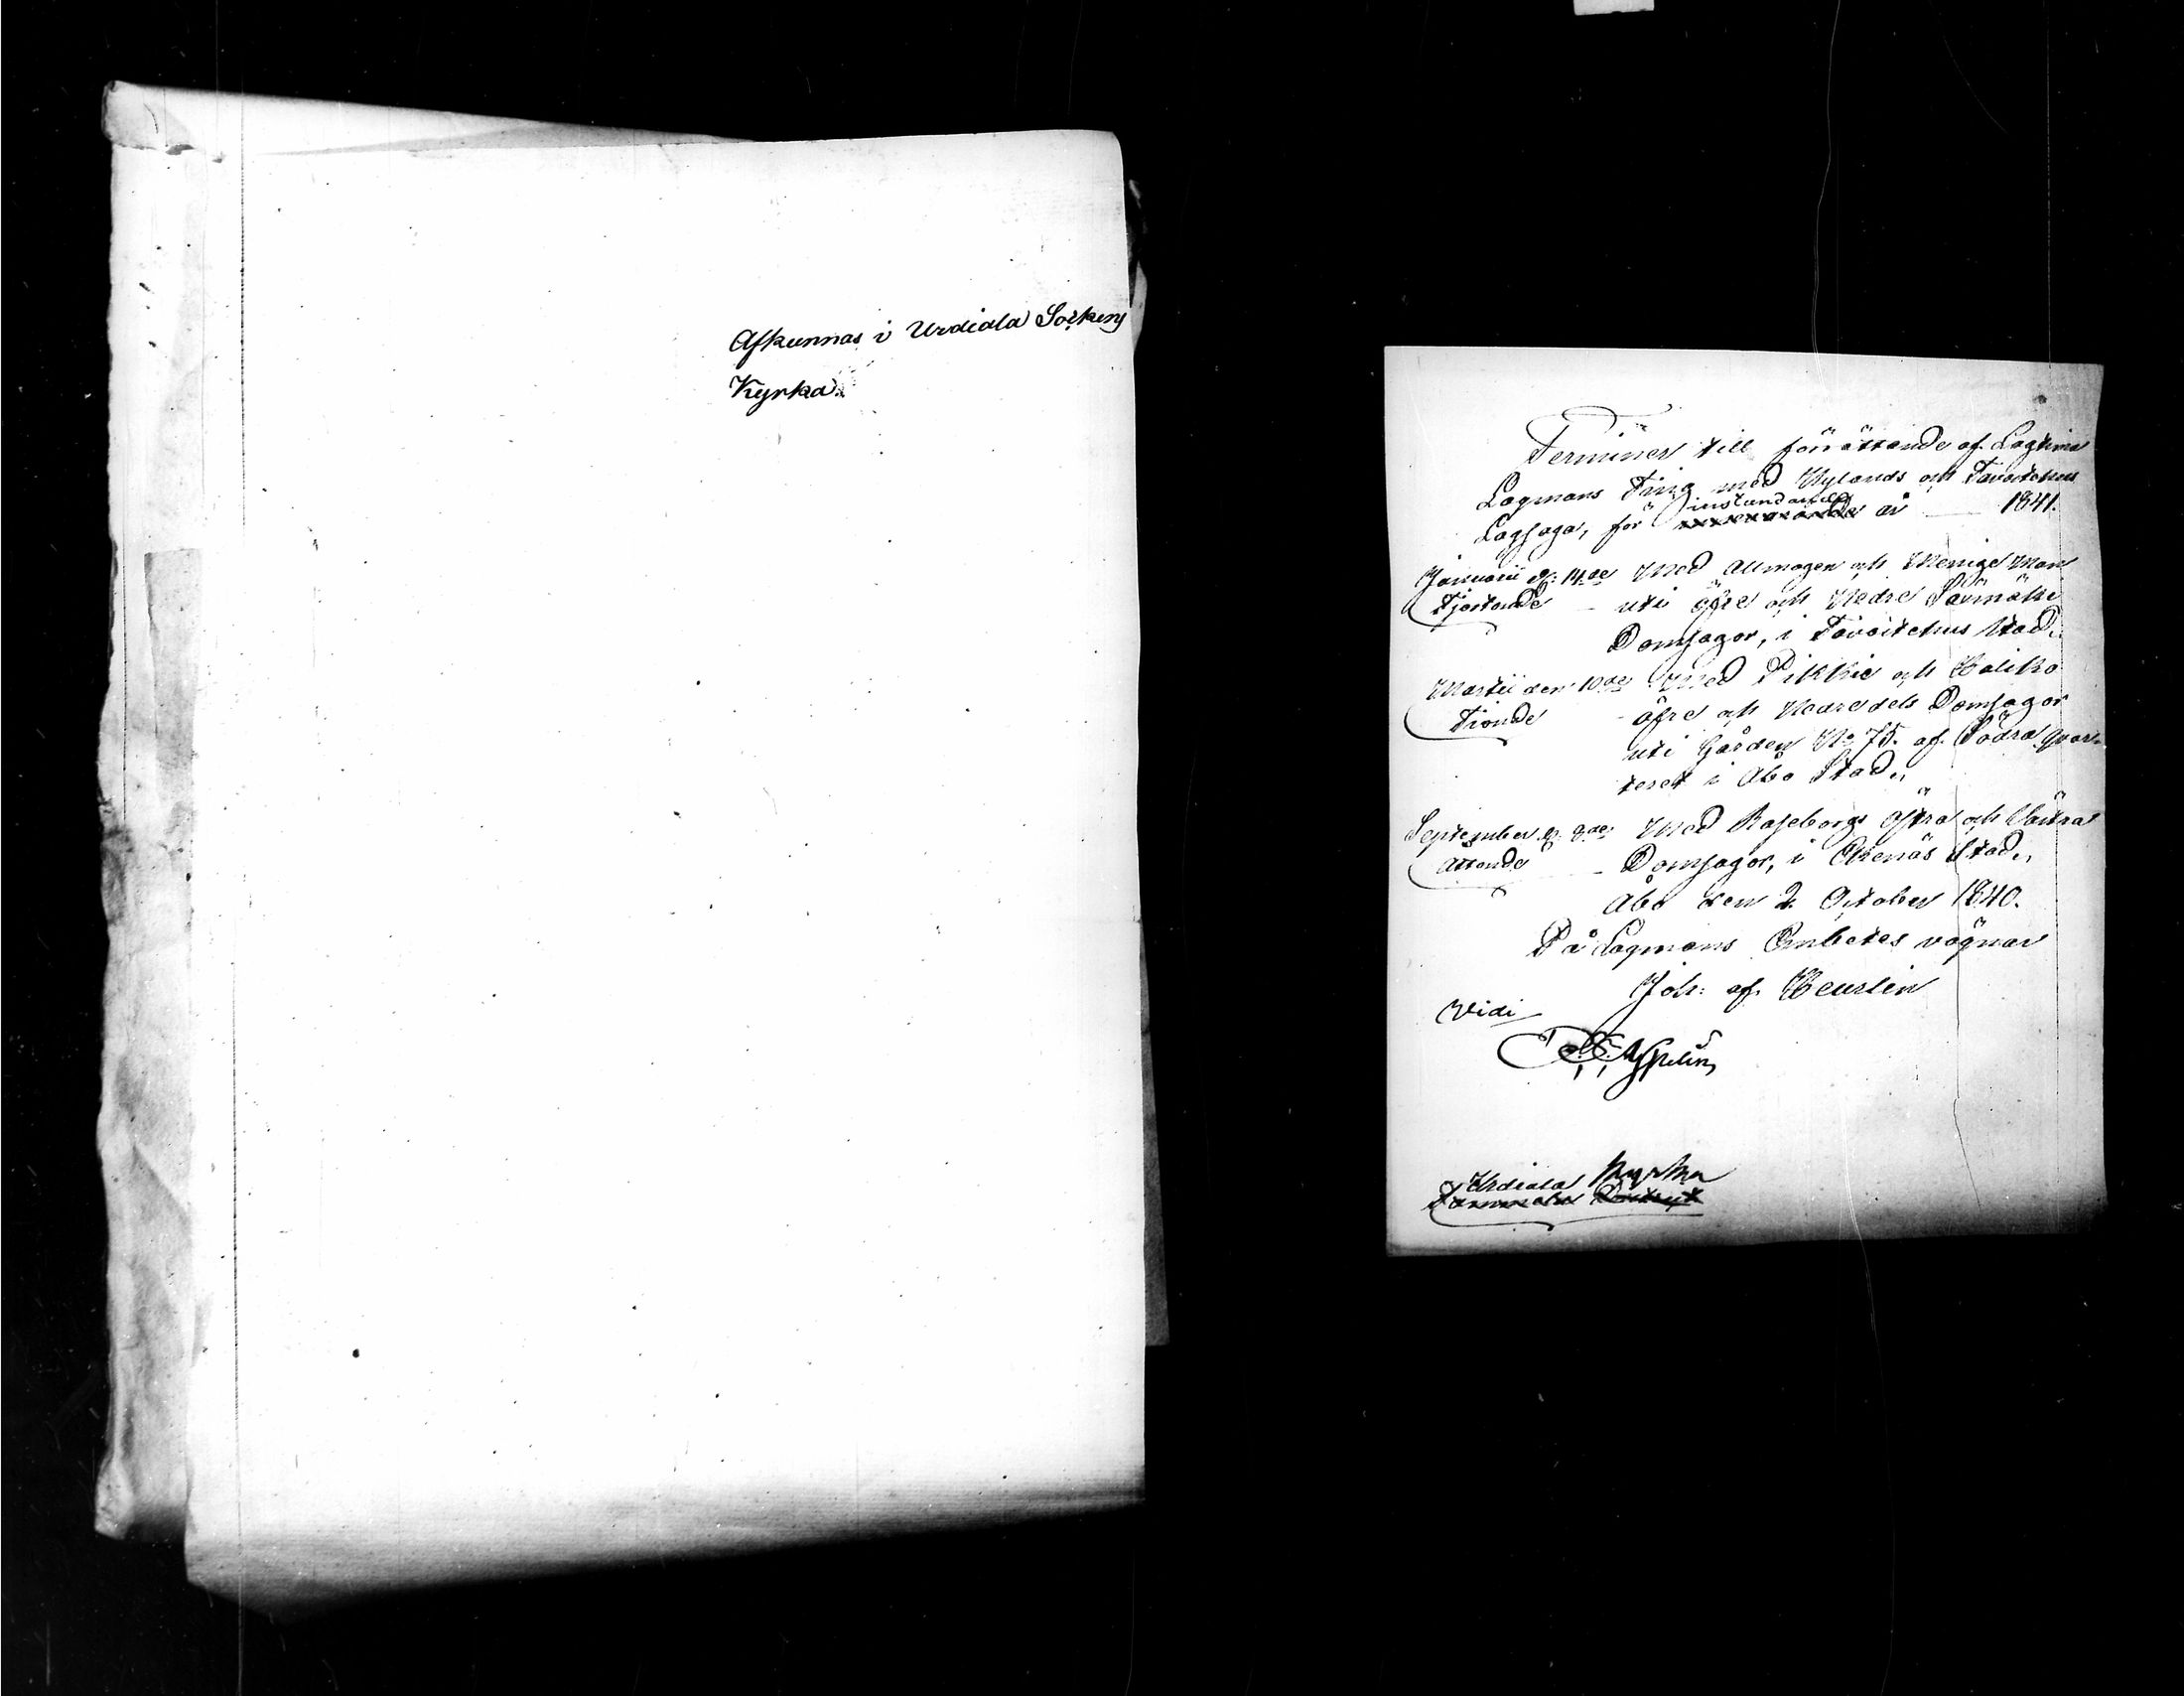 Afkunnas i Urdiala Sokens
Kyrka.
Terminer till förrättande af Lagtima
Lagmans Ting med Nylands och Tavastehus
Lagsaga, för instundande år 1841.
Januarii d. 14de Med Allmogen och Menige Man
Fjortonde uti öfre och Nedre Säxmäki
Domsagor, i Tavastehus Stad.,
Martii den 10de Med Pikkie och Haliko
Tionde öfre och Nedredels Domsagor
uti Gården No 75. af Södra qvar-
teret i Åbo Stad.,
September d. 8de Med Raseborgs östra och Västra
Åttonde Domsagor, i Ekenäs Stad.,
Åbo den 2. October 1840.
På Lagmans Embetes vägnar
Joh: af Heurlin
Vidi
Urdiala Kyrka